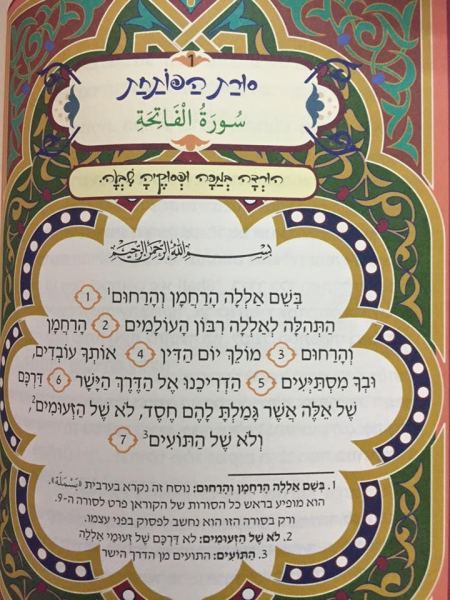 1
סוּרַת הַפוֹתֵחַת
سُورَةُ الْفَاتِحَةِ
הוּרְדָה בְּמַכָּה וּפְסוּקֶיהָ שִׁבְעָה.
بِسْمِ اللَّهِ الرَّحْمَٰنِ الرَّحِيمِ
בְּשֵׁם אַלְלָה הָרַחֲמָן וְהָרַחוּם¹ 1
הַתְּהִלָּה לְאַלְלָה רִבּוֹן הָעוֹלָמִים 2 הָרַחֲמָן
וְהָרַחוּם 3 מוֹלֵךְ יוֹם הַדִּין 4 אוֹתְךָ עוֹבְדִים,
וּבְךָ מִסְתַּיְּעִים 5 הַדְרִיכֵנוּ אֶל הַדֶּרֶךְ הַיָּשָׁר 6 דַּרְכָּם
שֶׁל אֵלֶּה אֲשֶׁר גָּמַלְתָּ לָהֶם חֶסֶד, לֹא שֶׁל הַזְּעוּמִים²,
וְלֹא שֶׁל הַתּוֹעִים³ 7
1. בְּשֵׁם אַלְלָה הָרַחֲמָן וְהָרַחוּם: נוסח זה נקרא בערבית «بَسْمَلَة».
הוא מופיע בראש כל הסורות של הקוראן פרט לסורה ה-9.
ורק בסורה הזו הוא נחשב לפסוק בפני עצמו.
2. לֹא שֶׁל הַזְּעוּמִים: לא דַּרְכָּם של זעומי אַלְלָה
3. הַתּוֹעִים: התועים מן הדרך הישר